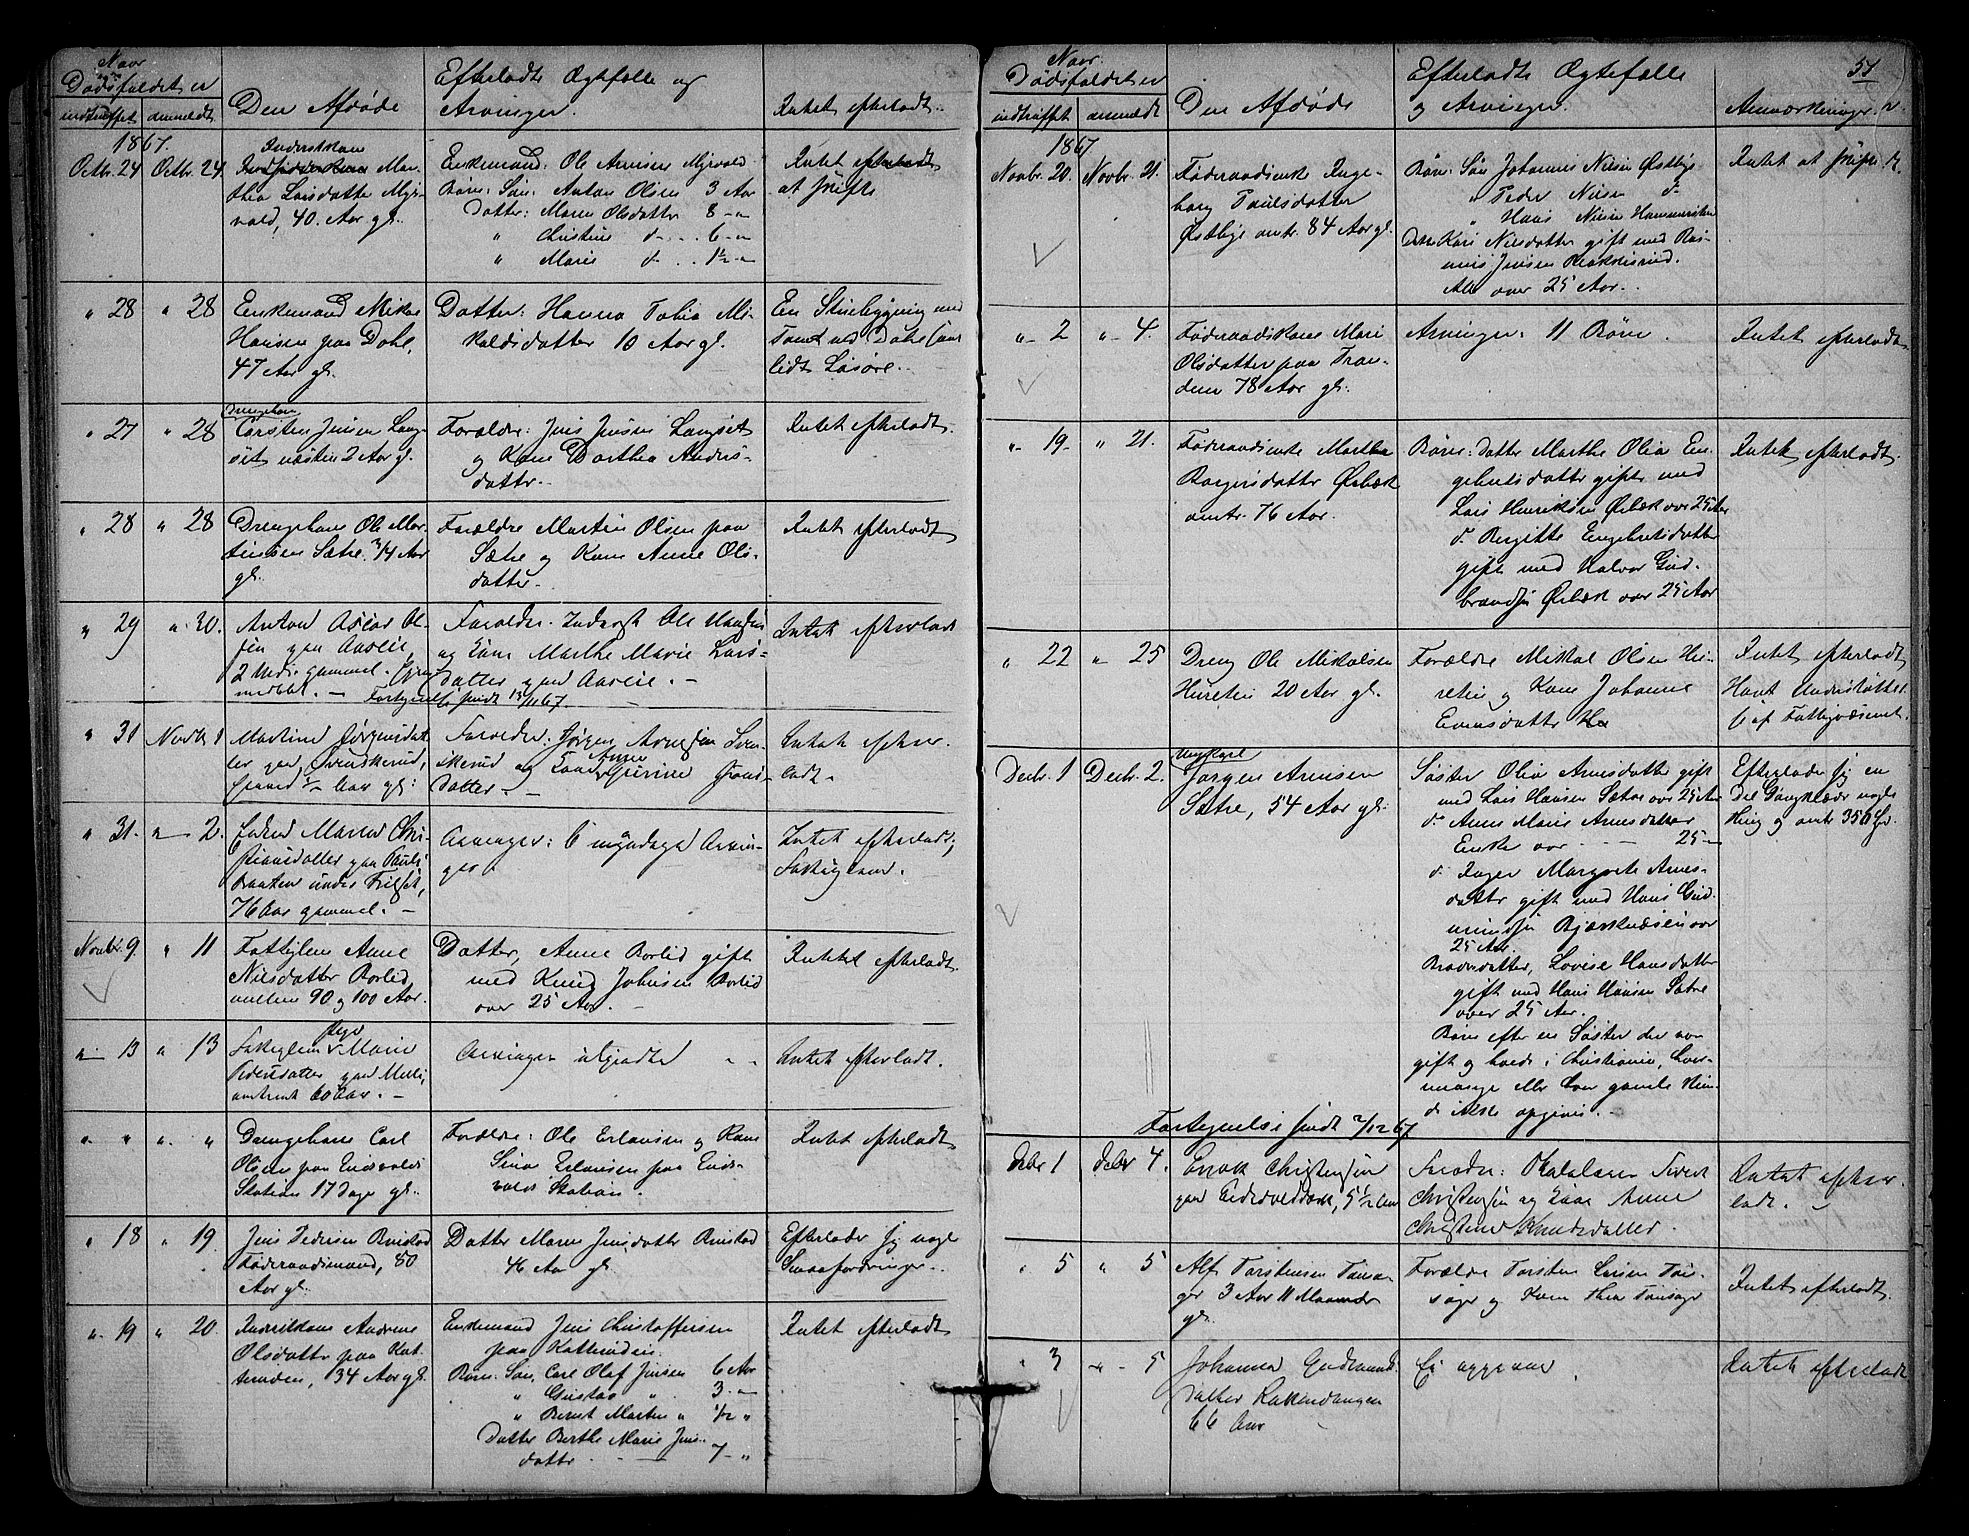 Naar
Dødsfaldet er
indtruffet anmeldt
Den Afdøde
Efterladte Ægtefælle og
Arvinger.
Intet efterladt.
1867.
Octbr. 24 Octbr. 24
Inderstkone
Mar-
thea Larsdatter Myr-
vold, 40. Aar gl.
Enkemand: Ole Arnesen Myrvold
Børn: Søn: Anton Olsen 3 Aar
Datter: Maren Olsdatter 8 -"-
" Christine d- . . 6 -"-
" Marie d- . . 1½ -"-
Intet efterladt
at skifte
" 28 " 28
Enkemand Mikal
Hansen paa Dahl,
47 Aar gl.
Datter: Hanna Tobia Mi-
kalsdatter 10 Aar gl.
En Stuebygning med
Tomt ved Dahl (
lidt Løsøre.
" 27 " 28
Drengebarn
Carsten Jensen Lang-
set næsten 2 Aar gl.
Forældre: Jens Jensen Langset
og Kone Dorthea Anders-
datter.
Intet efterladt.
" 28 " 28
Drengebarn Ole Mar-
tinsen Sætre 3/4 Aar
gl.
Forældre Martin Olsen paa
Sætre og Kone Anne Ols-
datter.
Intet efterladt
" 29 " 30.
Anton Oscar Ol-
sen paa Aaslie,
2 gammel.
Forældre: Inderst Ole Hansen
og Kone Marthe Marie Lars-
datter paa Aaslie. -
Fortegnelse sendt 13/11 67
Intet efterladt
" 31 Novbr 1
Martine Jørgensdat-
ter paa Svenskerud,
½ Aar gl:
Forældre: Jørgen Arnesen Sven-
skerud og Kone Anne Gurine
datter -
Intet efter-
ladt. -
" 31. " 2.
Enken Maren Chri-
stiansdatter paa Pauls-
Braaten under Frilset,
76 Aar gammel. -
Arvinger: 6 myndige Arvin-
ger.
Intet efterladt;
Fattiglem.
Novbr. 9. " 11
Fattiglem Anne
Nilsdatter Borlid
mellem 90 og 100 Aar.
Datter, Anne Borlid gift
med Knud Johnsen Borlid
over 25 Aar. -
Intet efterladt.
" 13 " 13
Fattiglem Pige Marie
Pedersdatter paa
omtrent 60 Aar. -
Arvinger
Intet efterladt.
" " " "
Drengebarn Carl
Olsen paa Eidsvolds
Station 17 Dage gl.
Forældre: Ole Erlansen og Kone
Sina Erlansen paa Eids-
volds Station.
Intet efterladt
" 18 " 19.
Jens Pedersen Bunstad
Føderaadsmand, 80
Aar gl.
Datter Maren Jensdatter Bunstad
46 Aar gl.
Efterlader sig nogle
Smaafordringer.
" 19 " 20.
Inderstkone Andrine
Olsdatter paa Kat-
terunden, 34 Aar gl.
Enkemand Jens Christoffersen
paa Katterunden.
Børn: Søn, Carl Olaf Jensen 6 Aar
" Gustav " 3 -"-
" Bernt Martin " 1/12 "
Datter Berthe Marie Jens-
datter - 7 - "
Intet efterladt
57
Naar
Dødsfaldet er
indtruffet anmeldt
Den Afdøde
Efterladte Ægtefælle
og Arvinger.
Anmærkninger.
1867
Novbr. 20. Novbr. 21.
Føderaadsenke Inge-
borg Paulsdatter
Østbye omtr. 84 Aar gl.
Børn: Søn Johannes Nilsen Østbye
" Peder Nilsen d-
" Hans Nilsen
Datter Kari Nilsdatter gift med Ras-
mus Jensen
Alle over 25 Aar.
Intet at skifte
" 2 " 4.
Føderaadskone Mari
Olsdatter paa Tran-
dem 78 Aar gl.
Arvinger: 11 Børn.
Intet efterladt
" 19 " 21.
Føderaadsenke Marthea
Borgersdatter Ørbæk
omtr. 76 Aar.
Børn: Datter Marthe Olia En-
gebretsdatter gift med
Lars Henriksen Ørbæk over 25 Aar
d. Birgitte Engebretsdatter
gift med Halvor Gud-
brandsen Ørbæk over 25 Aar
Intet efterladt.
" 22 " 25
Dreng Ole Mikalsen
20 Aar gl.
Forældre Mikal Olsen
og Kone Johanne
Evensdatter
Intet efterladt
Havt Understøttel-
se af Fattigvæsenet.
Decbr. 1 Decbr. 2.
Ungkarl
Jørgen Arnesen
Sætre, 54 Aar gl.
Søster Olia Arnesdatter gift
med Lars Hansen Sætre over 25 Aar
d. Anne Marie Arnesdatter
Enke over - - - 25 -
d. Inger Margrete Arnes-
datter gift med Hans Gud-
mundsen over
25 Aar.
Broderdatter, Lovise Hansdatter
gift med Hans Hansen Sætre
over 25 Aar.
Børn efter en Søster der var
gift og boede i Christiania, hvor-
mange eller hvor gamle kun-
de ikke opgives. -
Efterlader sig en
Del Gangklæder nogle
Ting og omtr. 350
Fortegnelse sendt 2/12 67
Decbr 1 Decbr 4.
Enok Christensen
paa Eidsvoldbak, 5 1/2 Aar
Forældre:
Christensen og Kone Anne
Christine Knudsdatter.
Intet efter-
ladt. -
" 5 " 5
Alf Torstensen
3 Aar 11 Maaneder
gl.
Forældre Torsten Larsen
og Kone Thea
Intet efterladt.
" 3 " 5
Johanna Gudmunds
datter
66 Aar
Ei opgivne
Intet efterladt